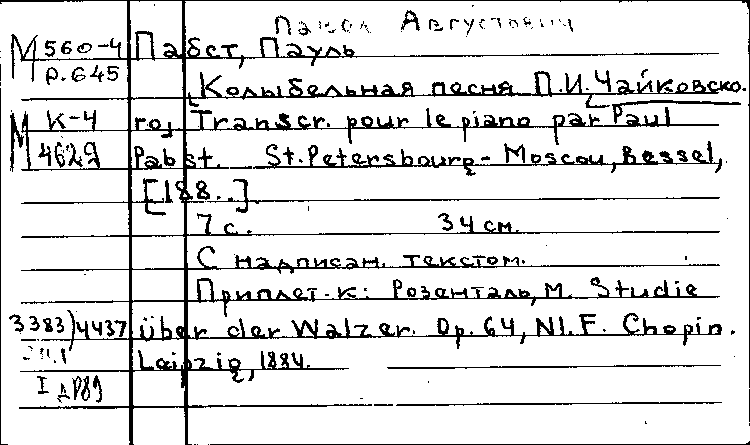 Павел Августович
М 560-4 Пабст, Пауль
Р.645
Колыбельная песня П.И. Чайковско-
М К-4 го, Transcr. pour le piano par Paul
4629 Pabst. St. Petersbourg - Moscou, Bessel,
[188..].
7 с. 34 см.
С надписан. текстом.
Приплет. к: Розенталь, М. Studie
3383)4437 über der Walzer. Op. 64, N1. F. Chopin.
Leipzig, 1884.